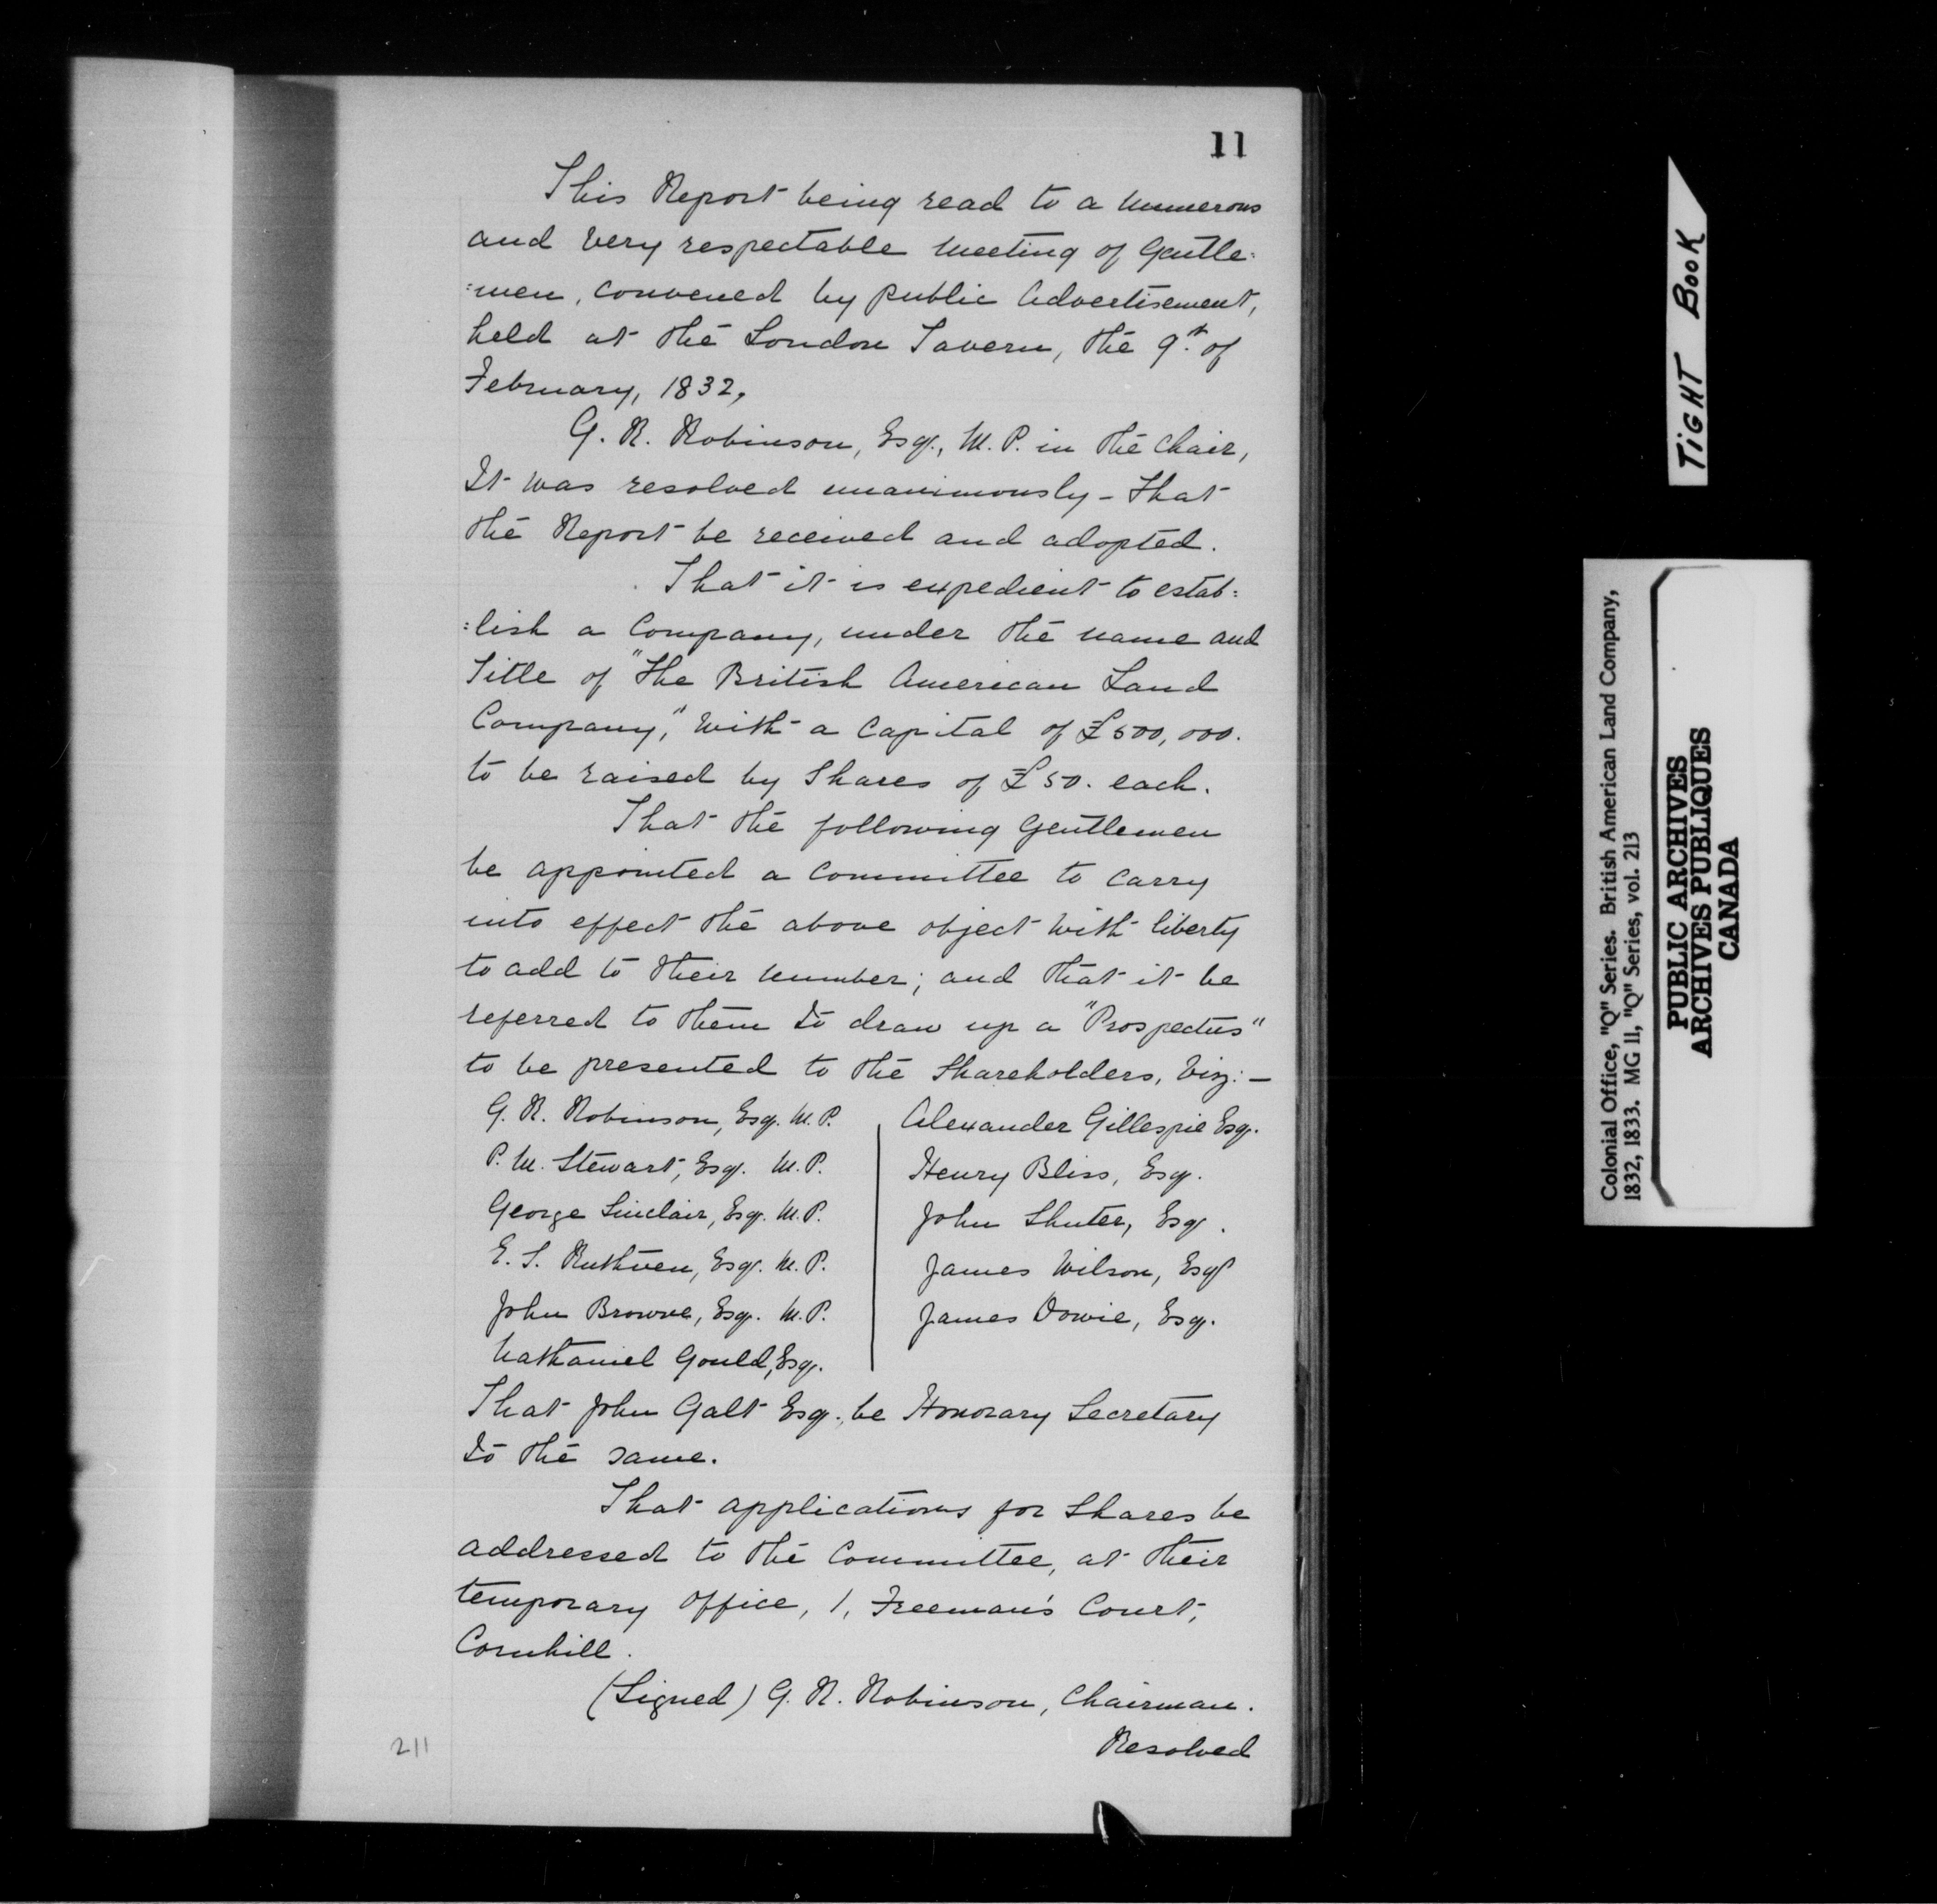 11
This Report being read to a numerous
and very respectable meeting of Gentle:
:men, convened by public Advertisement,
held at the London Tavern, the 9th of
February, 1832,
G. R. Robinson, Esq., M. P. in the Chair,
It was resolved unanimously - That
the Report be received and adopted.
That it is expedient to estab:
:lish a Company, under the name and
Title of "The British American Land
Company," with a Capital of £500,000.
to be raised by Shares of £50. each.
That the following Gentlemen
be appointed a Committee to carry
into effect the above object with liberty
to add to their number; and that it be
referred to them to draw up a "Prospectus"
to be presented to the Shareholders, viz: —
G. R. Robinson, Esq. M. P.
P. M. Stewart, Esq. M. P.
George Sinclair, Esq. M. P.
E. S. Ruthven, Esq. M. P.
John Browne, Esq. M. P.
Nathaniel Gould, Esq.
Alexander Gillespie Esq.
Henry Bliss, Esq.
John Shuter, Esq.
James Wilson, Esq
James Dowie, Esq.
That John Galt Esq., be Honorary Secretary
to the same.
That applications for Shares be
addressed to the Committee, at their
temporary Office, 1, Freeman's Court,
Cornhill.
(Signed) G. R. Robinson, Chairman.
Resolved
211
TIGHT BOOK
Colonial Office, "Q" Series. British American Land Company,
1832, 1833. MG 11, "Q" Series, vol. 213
PUBLIC ARCHIVES
ARCHIVES PUBLIQUES
CANADA